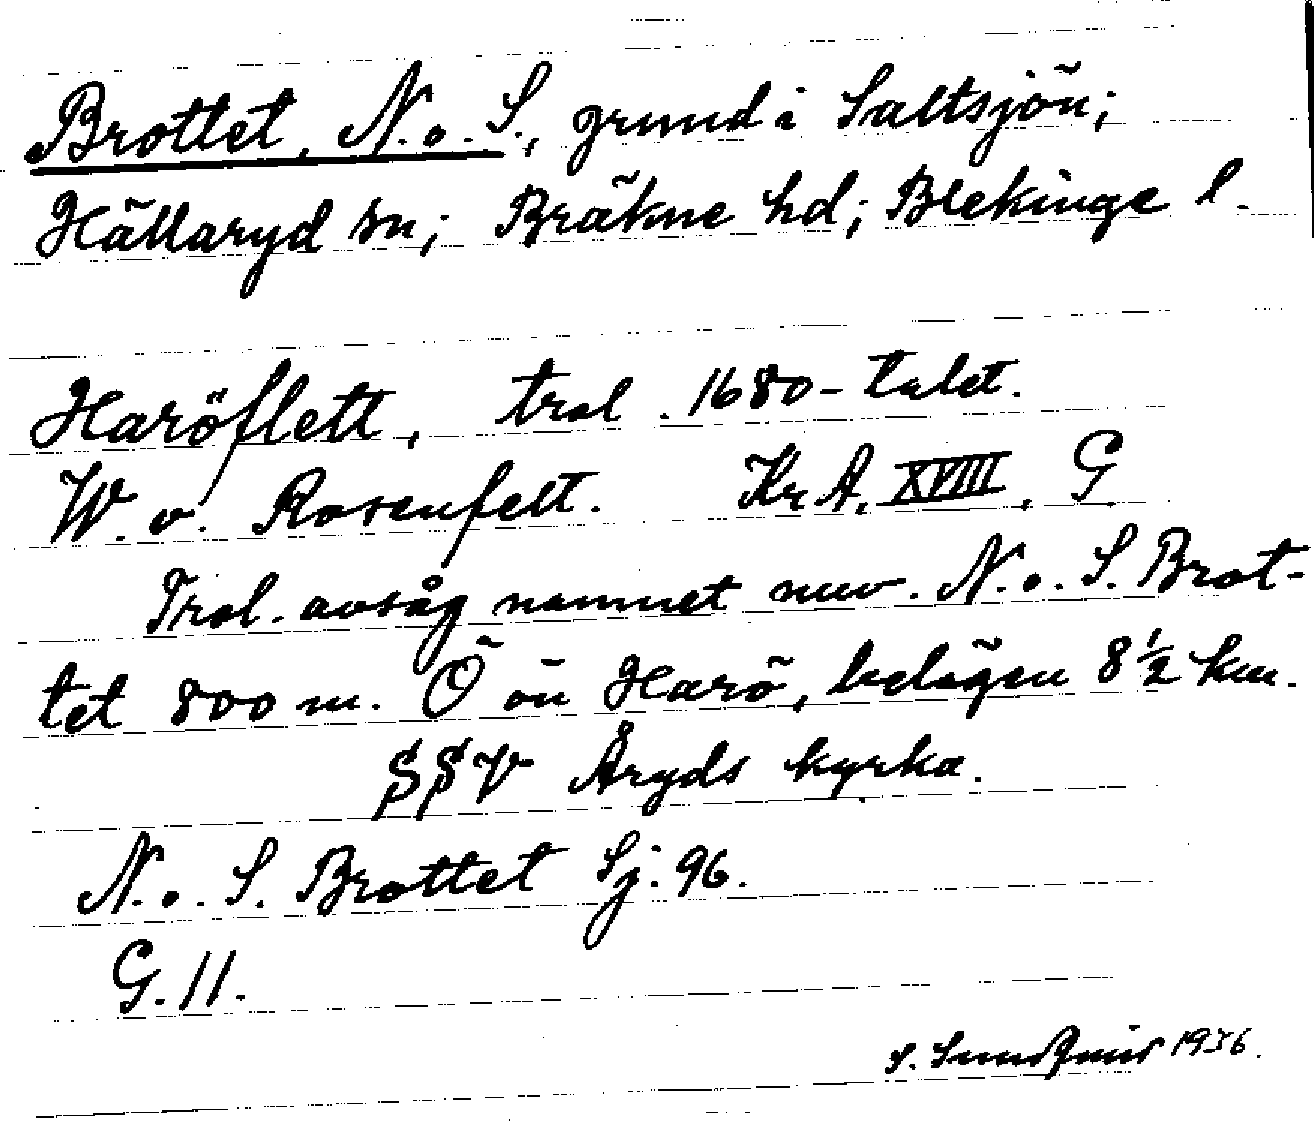 Brottet, N. o. S., grund i Saltsjön;
Hällaryd sn; Bräkne hd; Blekinge l.
Haröflett, trol. 1680-talet.
W. v. Rosenfelt. Kr. A. XVIII, G
Trol. avsåg namnet nuv. N. o. S. Brot-
tet 800 m. Ö ön Harö, belägen 8 ½ km.
SSV Åryds kyrka.
N. o. S. Brottet Sj. 96.
G. 11.
S. 1936.